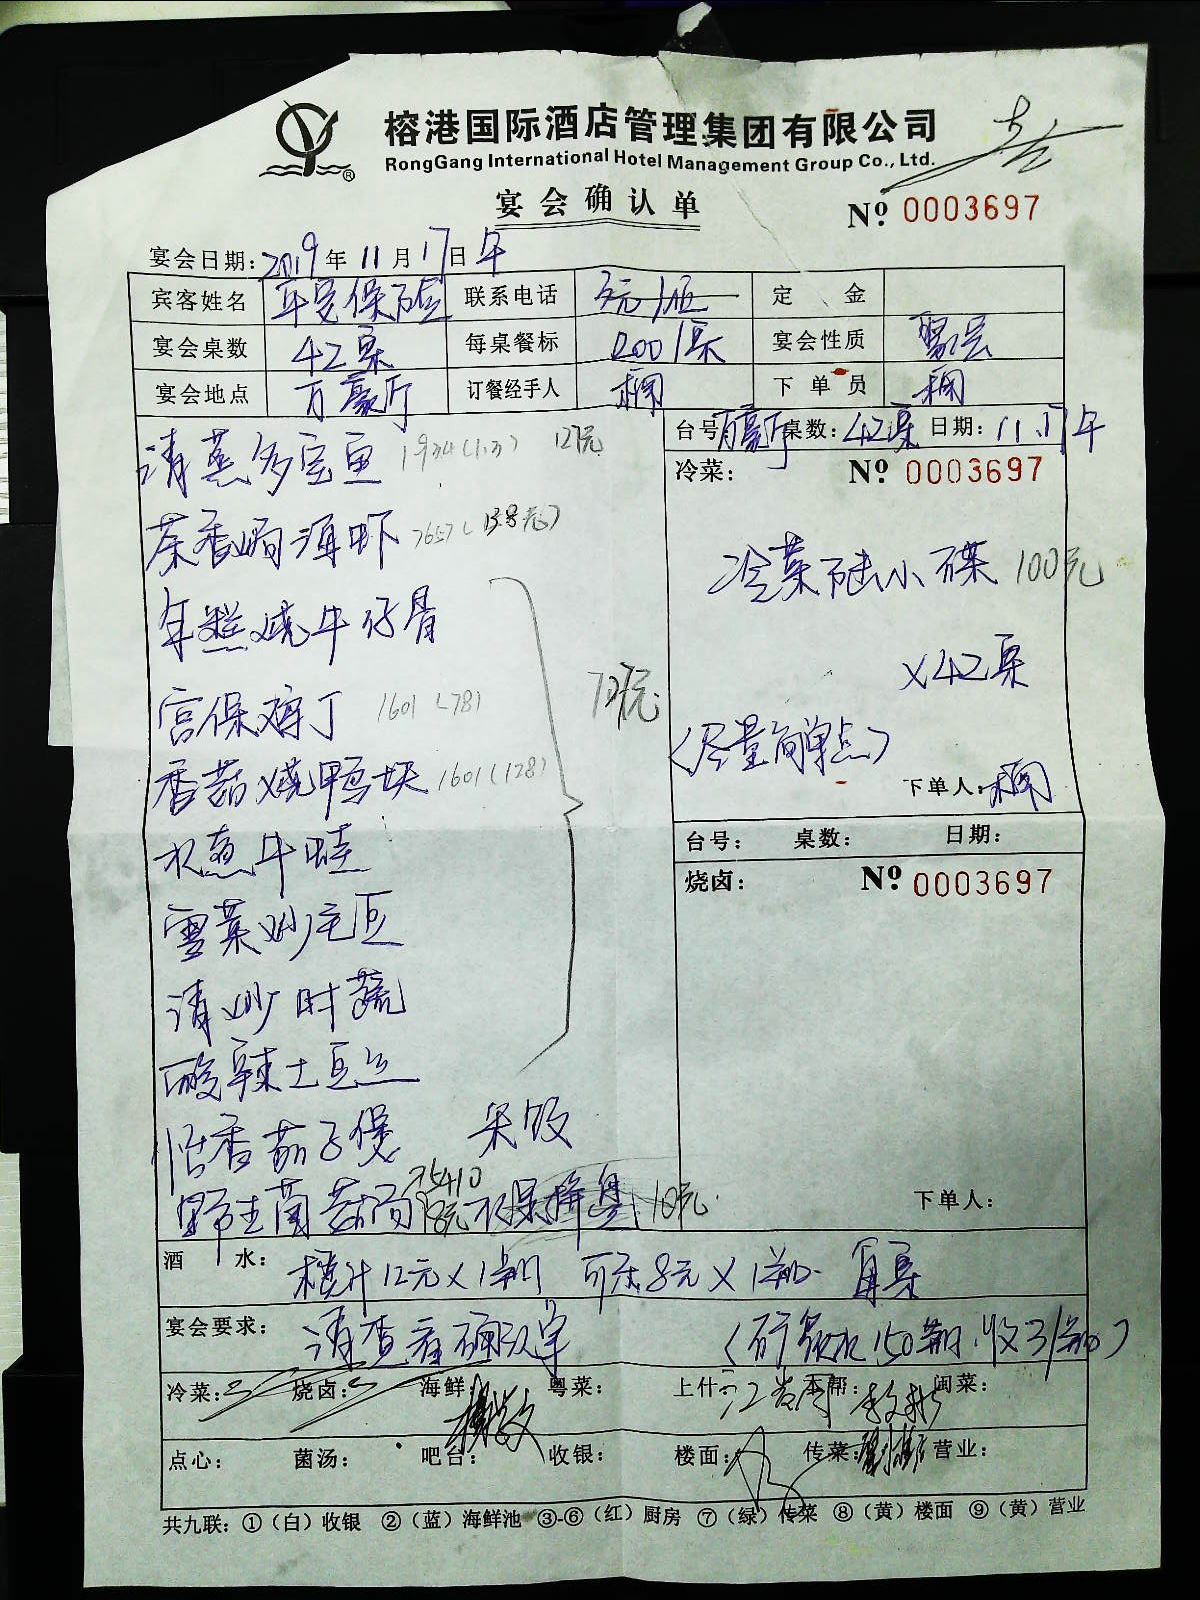 榕港国际酒店管理集团有限公司
RongGang International Hotel Management Group Co., Ltd.
宴会确认单
№ 0003697
宴会日期: 2019年11月17日午
宾客姓名 联系电话 定 金
宴会桌数 42桌 每桌餐标 1200/桌 宴会性质
宴会地点 万豪厅 订餐经手人 下单员
台号: 万豪厅 桌数: 42桌 日期: 11.17午
清蒸多宝鱼
冷菜: № 0003697
茶香焗海虾
冷菜陆小碟 100元
年糕烧牛仔骨
×42桌
宫保鸡丁 1601 (78)
(尽量简单点)
香菇烧鸭块 1601 (128)
下单人:
水煮牛蛙
台号: 桌数: 日期:
烧卤: № 0003697
雪菜炒毛豆
清炒时蔬
酸辣土豆丝
茄子煲
野生菌菇汤 10元
下单人:
酒 水: 橙汁12元×1瓶 可乐8元×1瓶 每桌
宴会要求: 请查看确认字 (矿泉水150瓶.收3/瓶)
冷菜: 烧卤: 海鲜 粤菜: 上什 本帮: 闽菜:
点心: 菌汤: 吧台: 收银: 楼面: 传菜: 营业:
共九联: ①(白)收银 ②(蓝)海鲜池 ③-⑥(红)厨房 ⑦(绿)传菜 ⑧(黄)楼面 ⑨(黄)营业